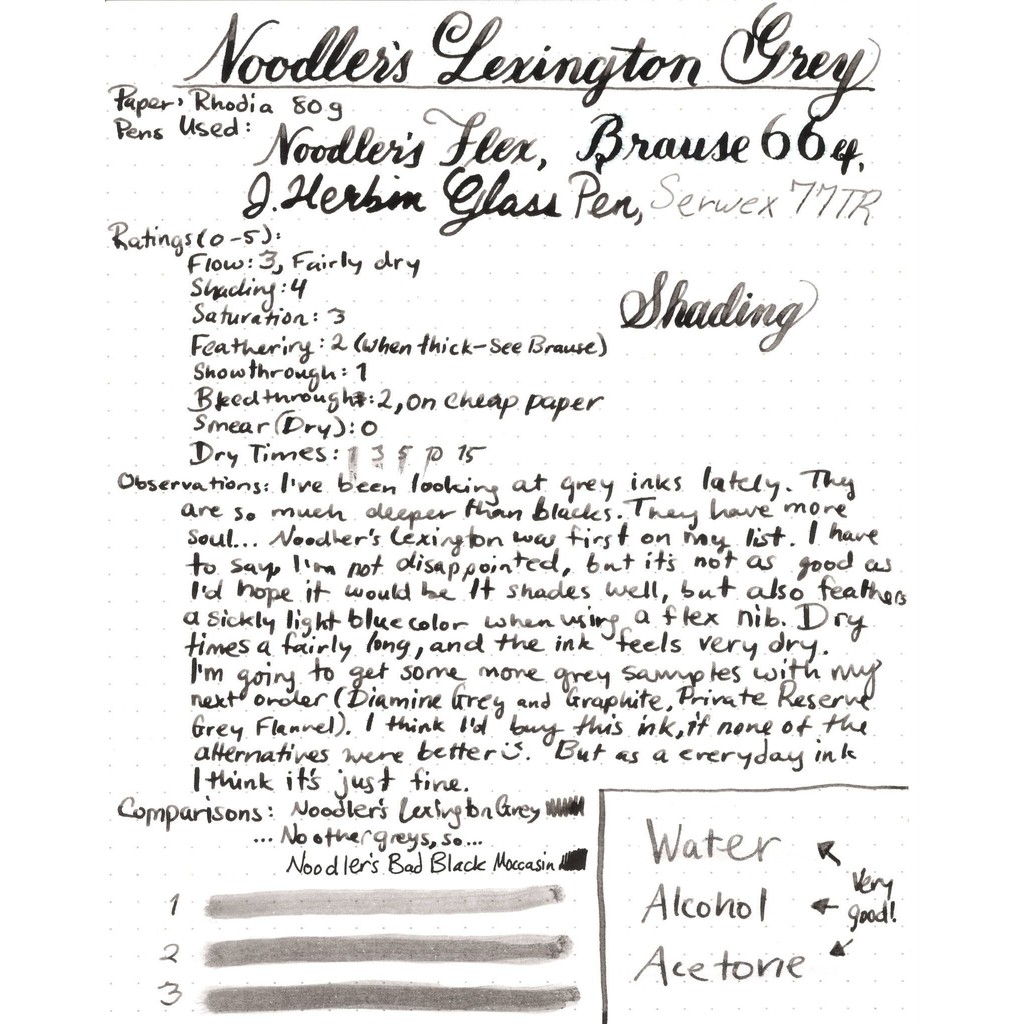 Noodler's Lexington Grey
Paper: Rhodia 80g
Pens Used:
Noodler's Flex, Brause 66EF,
J. Herbin Glass Pen, Serwex 77TR
Ratings (0-5):
Flow: 3, Fairly dry
Shading: 4
Shading
Saturation: 3
Feathering: 2 (when thick-see Brause)
Showthrough: 1
Bleedthrough: 2, on cheap paper
Smear (Dry): 0
Dry Times: 1 3 5 10 15
Observations: I've been looking at grey inks lately. They
are so much deeper than blacks. They have more
soul... Noodler's Lexington was first on my list. I have
to say, I'm not disappointed, but it's not as good as
I'd hope it would be It shades well, but also feathers
a sickly light blue color when using a flex nib. Dry
times a fairly long, and the ink feels very dry.
I'm going to get some more grey samples with my
next order (Diamine Grey and Graphite, Private Reserve
Grey Flannel). I think I'd buy this ink, if none of the
alternatives were better. But as a everyday ink
I think it's just fine.
Comparisons: Noodler's Lexington Grey
... No other greys, so...
Noodler's Bad Black Moccasin
1
2
3
Water
Alcohol
Acetone
Very
good!